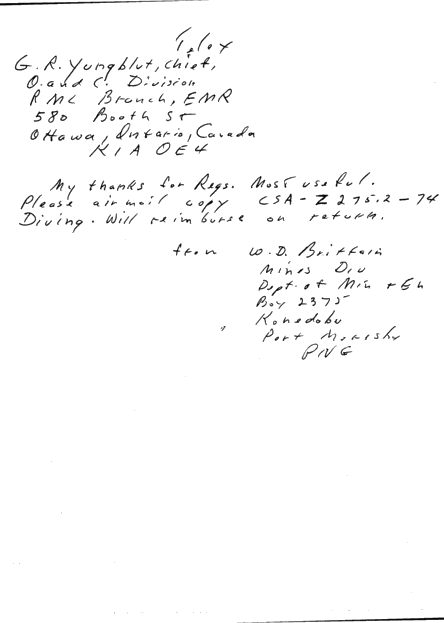 Telex
G. R. Yungblut, Chief,
O. and C. Division
RML Branch, EMR
580 Booth St
Ottawa, Ontario, Canada
K1A OE4
My thanks for Regs. Most useful.
Please airmail copy CSA-Z 275.2-74
Diving. Will reimburse on return.
from W. D. Brittain
Mines Div
Dept. of Min + En
Box 2375
Konedobu
Port Moresby
PNG